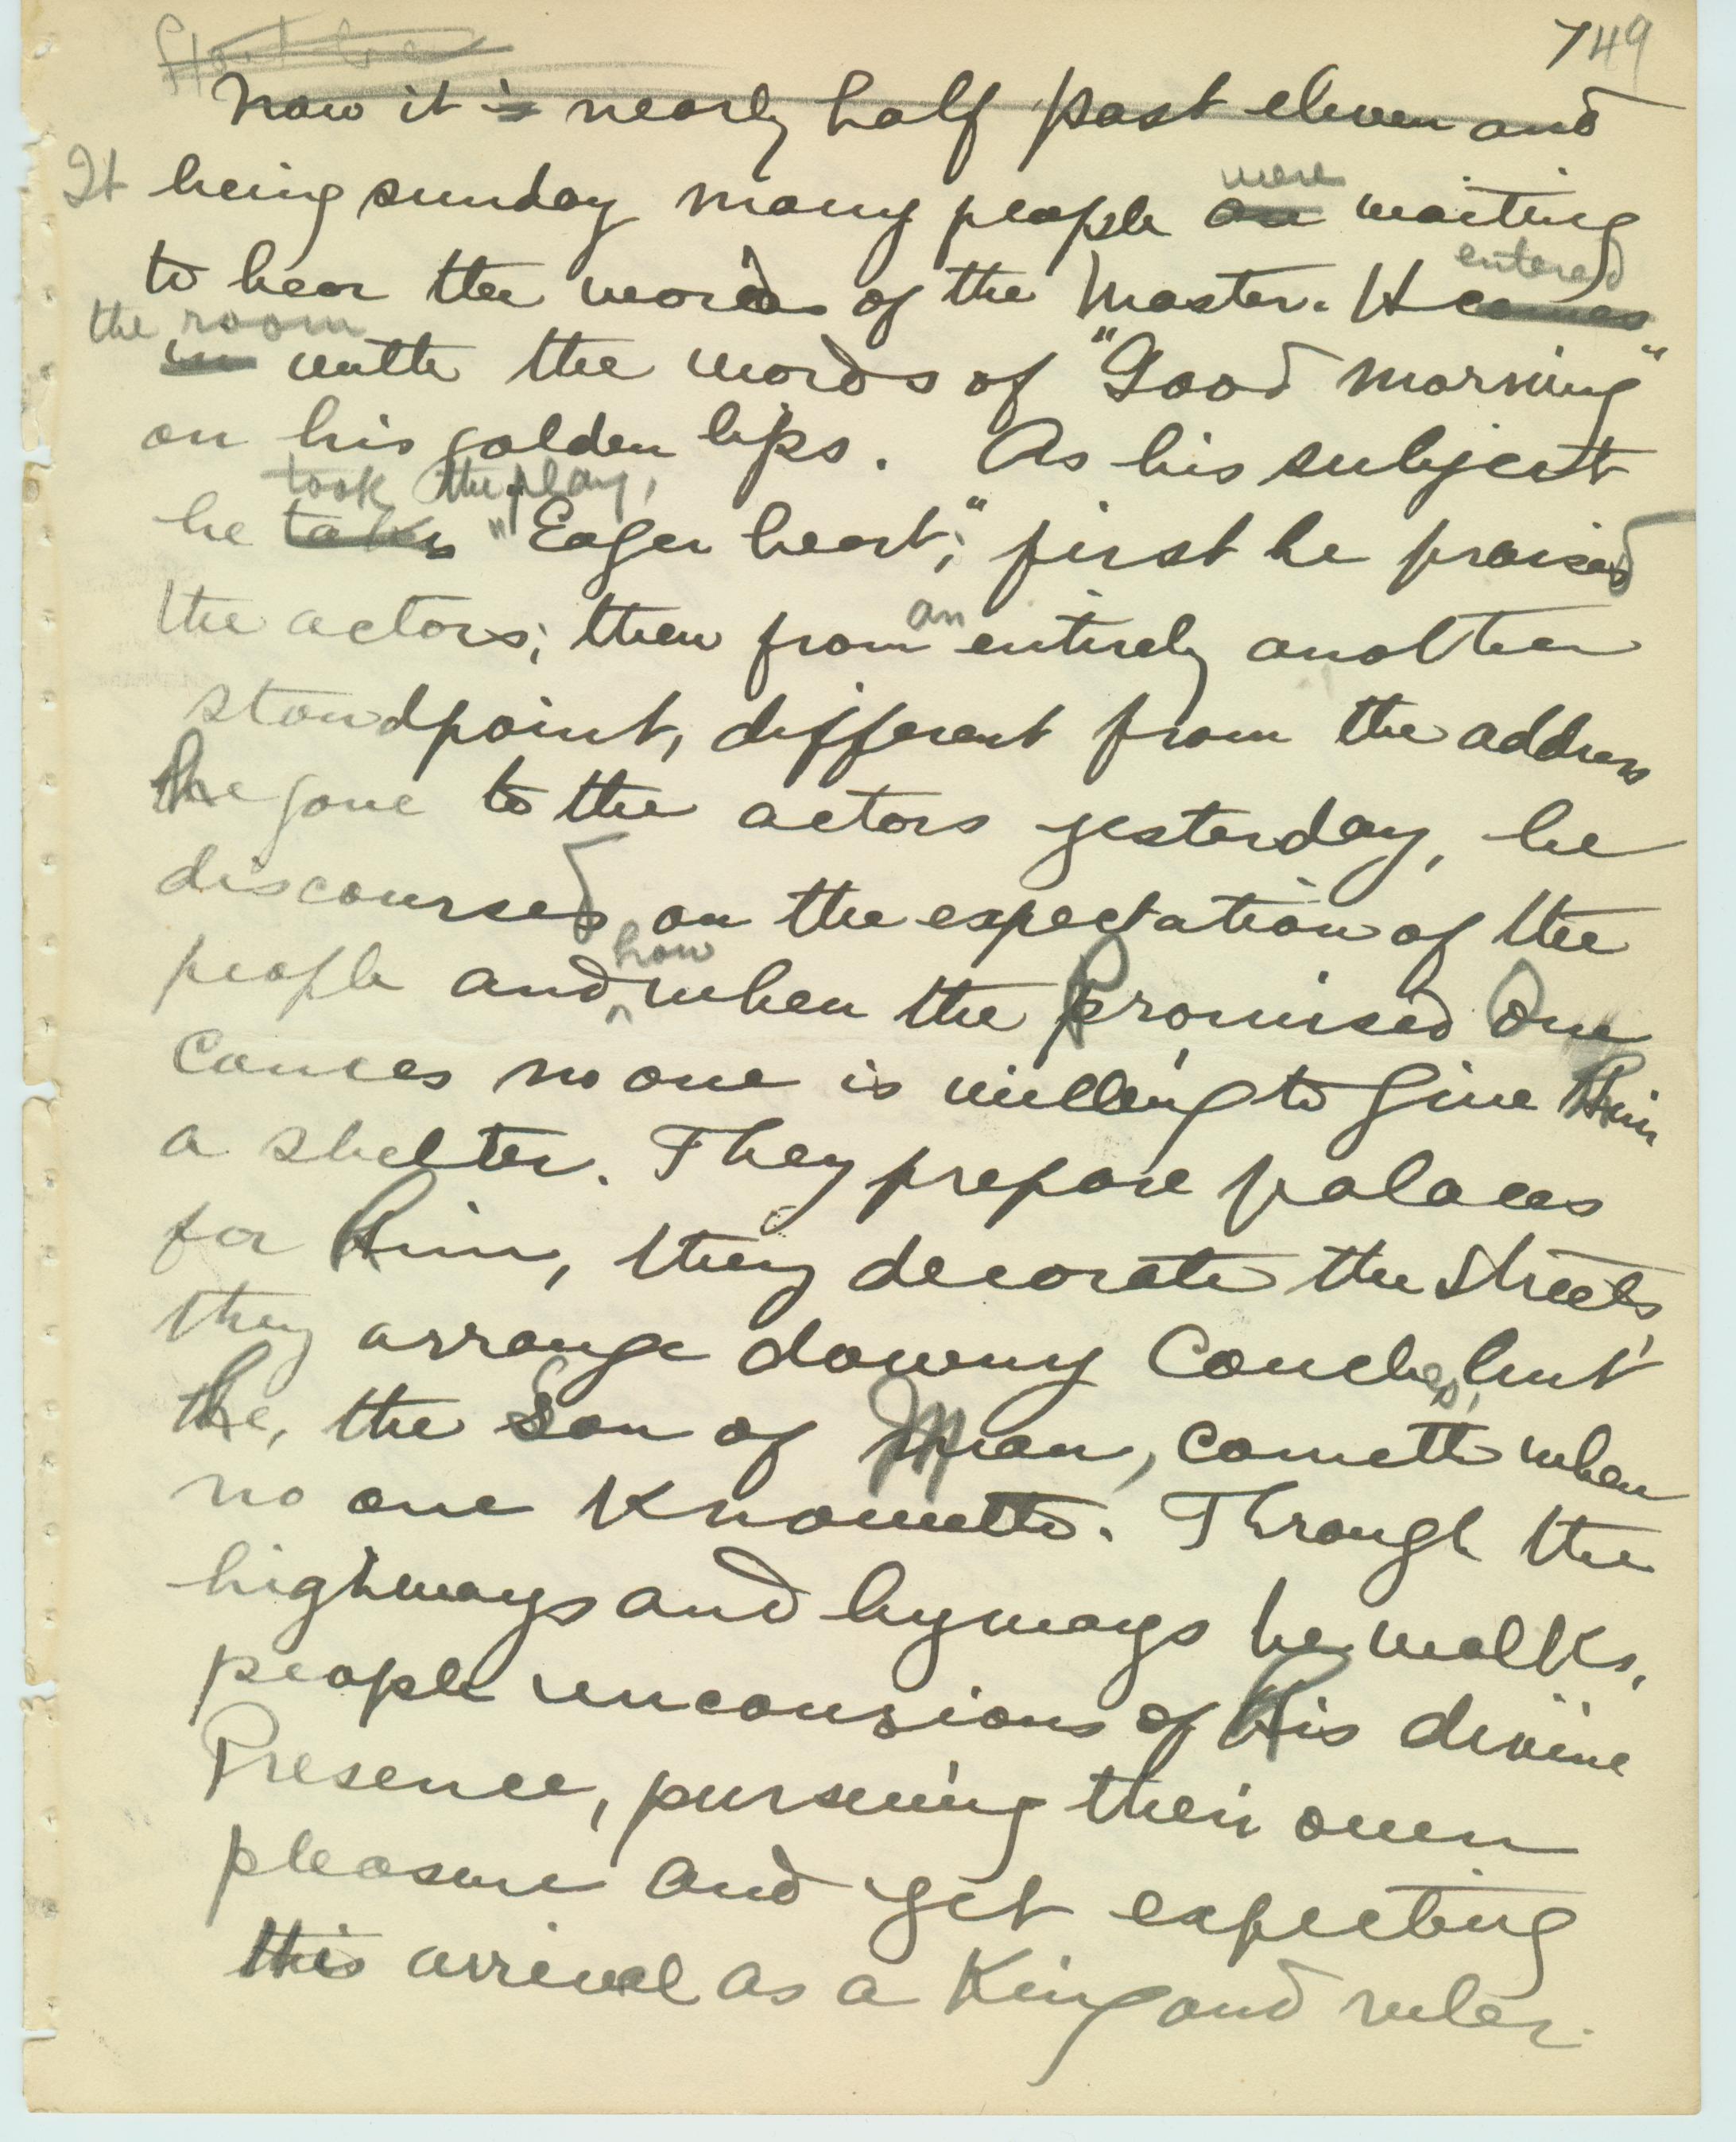 749
Start here
Now it is nearly half past eleven and
It being sunday many people are were waiting
to hear the words of the Master. He comes entered
the room in with the words of "Good morning"
on his golden lips. As his subject
he takes took the play, "Eager heart," first he praised
the actors; then from an entirely another
standpoint, different from the address
He gave to the actors yesterday, he
discoursed on the expectation of the
people and how when the Promised One
comes no one is willing to give Him
a shelter. They prepare palaces
for Him, they decorate the streets,
they arrange downy Couches, but
He, the Son of Man, cometh when
no one Knoweth. Through the
highways and byways he walks,
people unconsious of His divine
Presence, pursuing their own
pleasure and yet expecting
His arrival as a King and ruler.